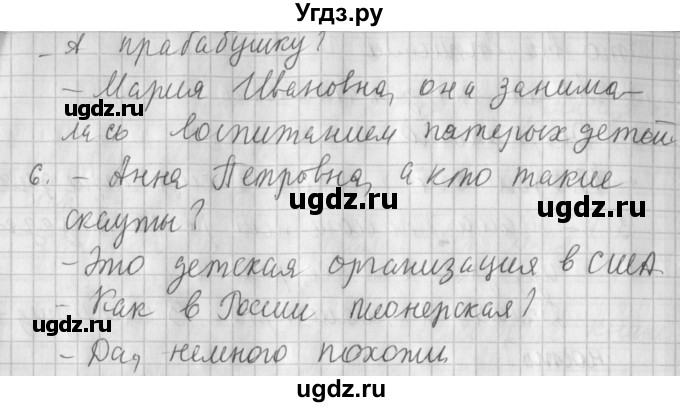 Угдз.ру
- А прабабушку?
- Мария Ивановна, она занима-
ugdz.ru ugdz.ru
лась воспитанием пятерых детей
6. - Анна Петровна, а кто такие
ugdz.ru
скауты?
ugdz.ru
- Это детская организация в США
- Как в России пионерская?
ugdz.ru ugdz.ru
- Да, немного похожи
ugdz.ru